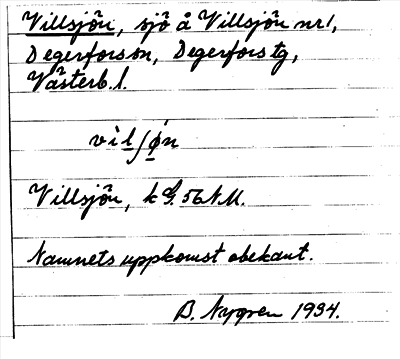 Villsjön, sjö å Villsjön nr 1,
Degerfors sn, Degerfors tg,
Västerb. l.
vìlʃǿn
Villsjön, k G. 56 N.M.
Namnets uppkomst obekant.
B. Nygren 1934.